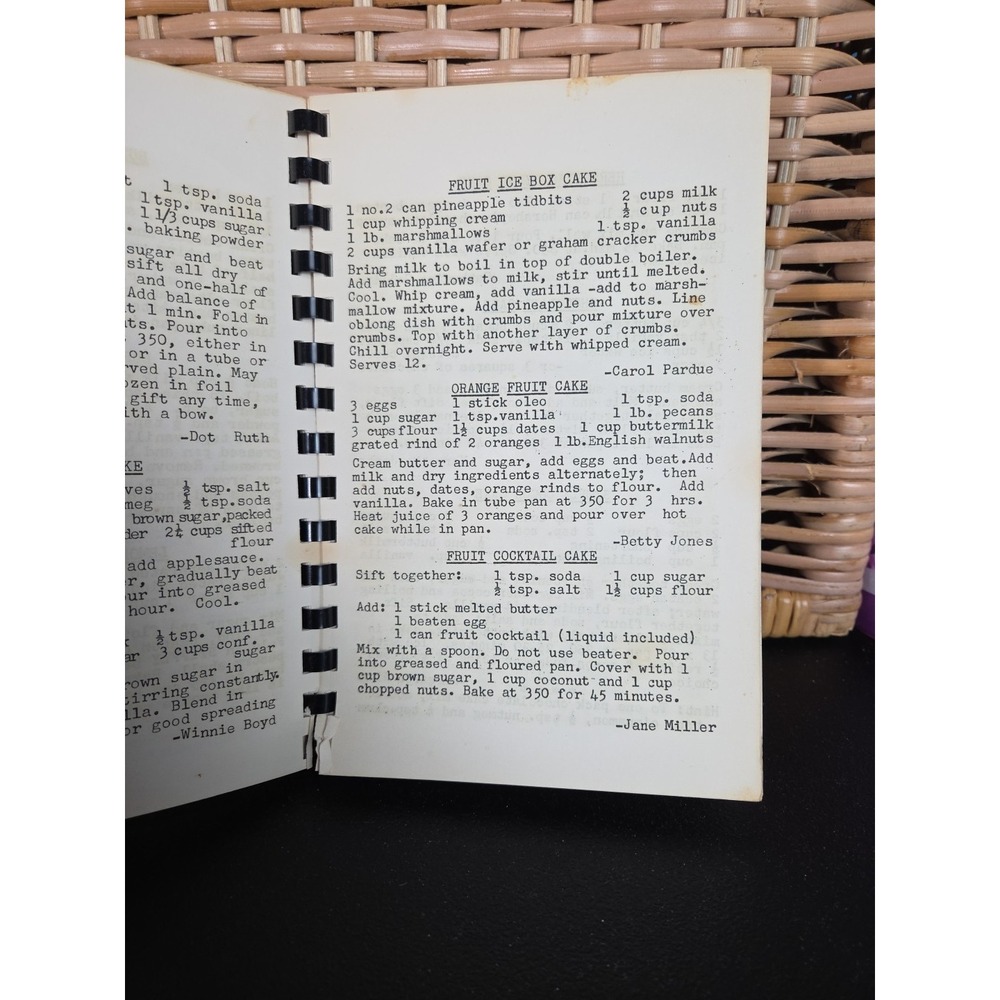 1 tsp. soda
1 tsp. vanilla
1 1/3 cups sugar
. baking powder
sugar and beat
sift all dry
and one-half of
Add balance of
1 min. Fold in
Pour into
350, either in
or in a tube or
plain. May
in foil
gift any time,
with a bow.
-Dot Ruth
½ tsp. salt
½ tsp. soda
brown sugar, packed
2¼ cups sifted
flour
add applesauce.
gradually beat
into greased
hour. Cool.
½ tsp. vanilla
3 cups conf.
sugar
brown sugar in
stirring constantly.
Blend in
good spreading
-Winnie Boyd
FRUIT ICE BOX CAKE
1 no.2 can pineapple tidbits 2 cups milk
1 cup whipping cream ½ cup nuts
1 lb. marshmallows 1 tsp. vanilla
2 cups vanilla wafer or graham cracker crumbs
Bring milk to boil in top of double boiler.
Add marshmallows to milk, stir until melted.
Cool. Whip cream, add vanilla -add to marsh-
mallow mixture. Add pineapple and nuts. Line
oblong dish with crumbs and pour mixture over
crumbs. Top with another layer of crumbs.
Chill overnight. Serve with whipped cream.
Serves 12.
-Carol Pardue
ORANGE FRUIT CAKE
3 eggs 1 stick oleo 1 tsp. soda
1 cup sugar 1 tsp.vanilla 1 lb. pecans
3 cups flour 1½ cups dates 1 cup buttermilk
grated rind of 2 oranges 1 lb.English walnuts
Cream butter and sugar, add eggs and beat.Add
milk and dry ingredients alternately; then
add nuts, dates, orange rinds to flour. Add
vanilla. Bake in tube pan at 350 for 3 hrs.
Heat juice of 3 oranges and pour over hot
cake while in pan.
-Betty Jones
FRUIT COCKTAIL CAKE
Sift together: 1 tsp. soda 1 cup sugar
½ tsp. salt 1½ cups flour
Add: 1 stick melted butter
1 beaten egg
1 can fruit cocktail (liquid included)
Mix with a spoon. Do not use beater. Pour
into greased and floured pan. Cover with 1
cup brown sugar, 1 cup coconut and 1 cup
chopped nuts. Bake at 350 for 45 minutes.
-Jane Miller